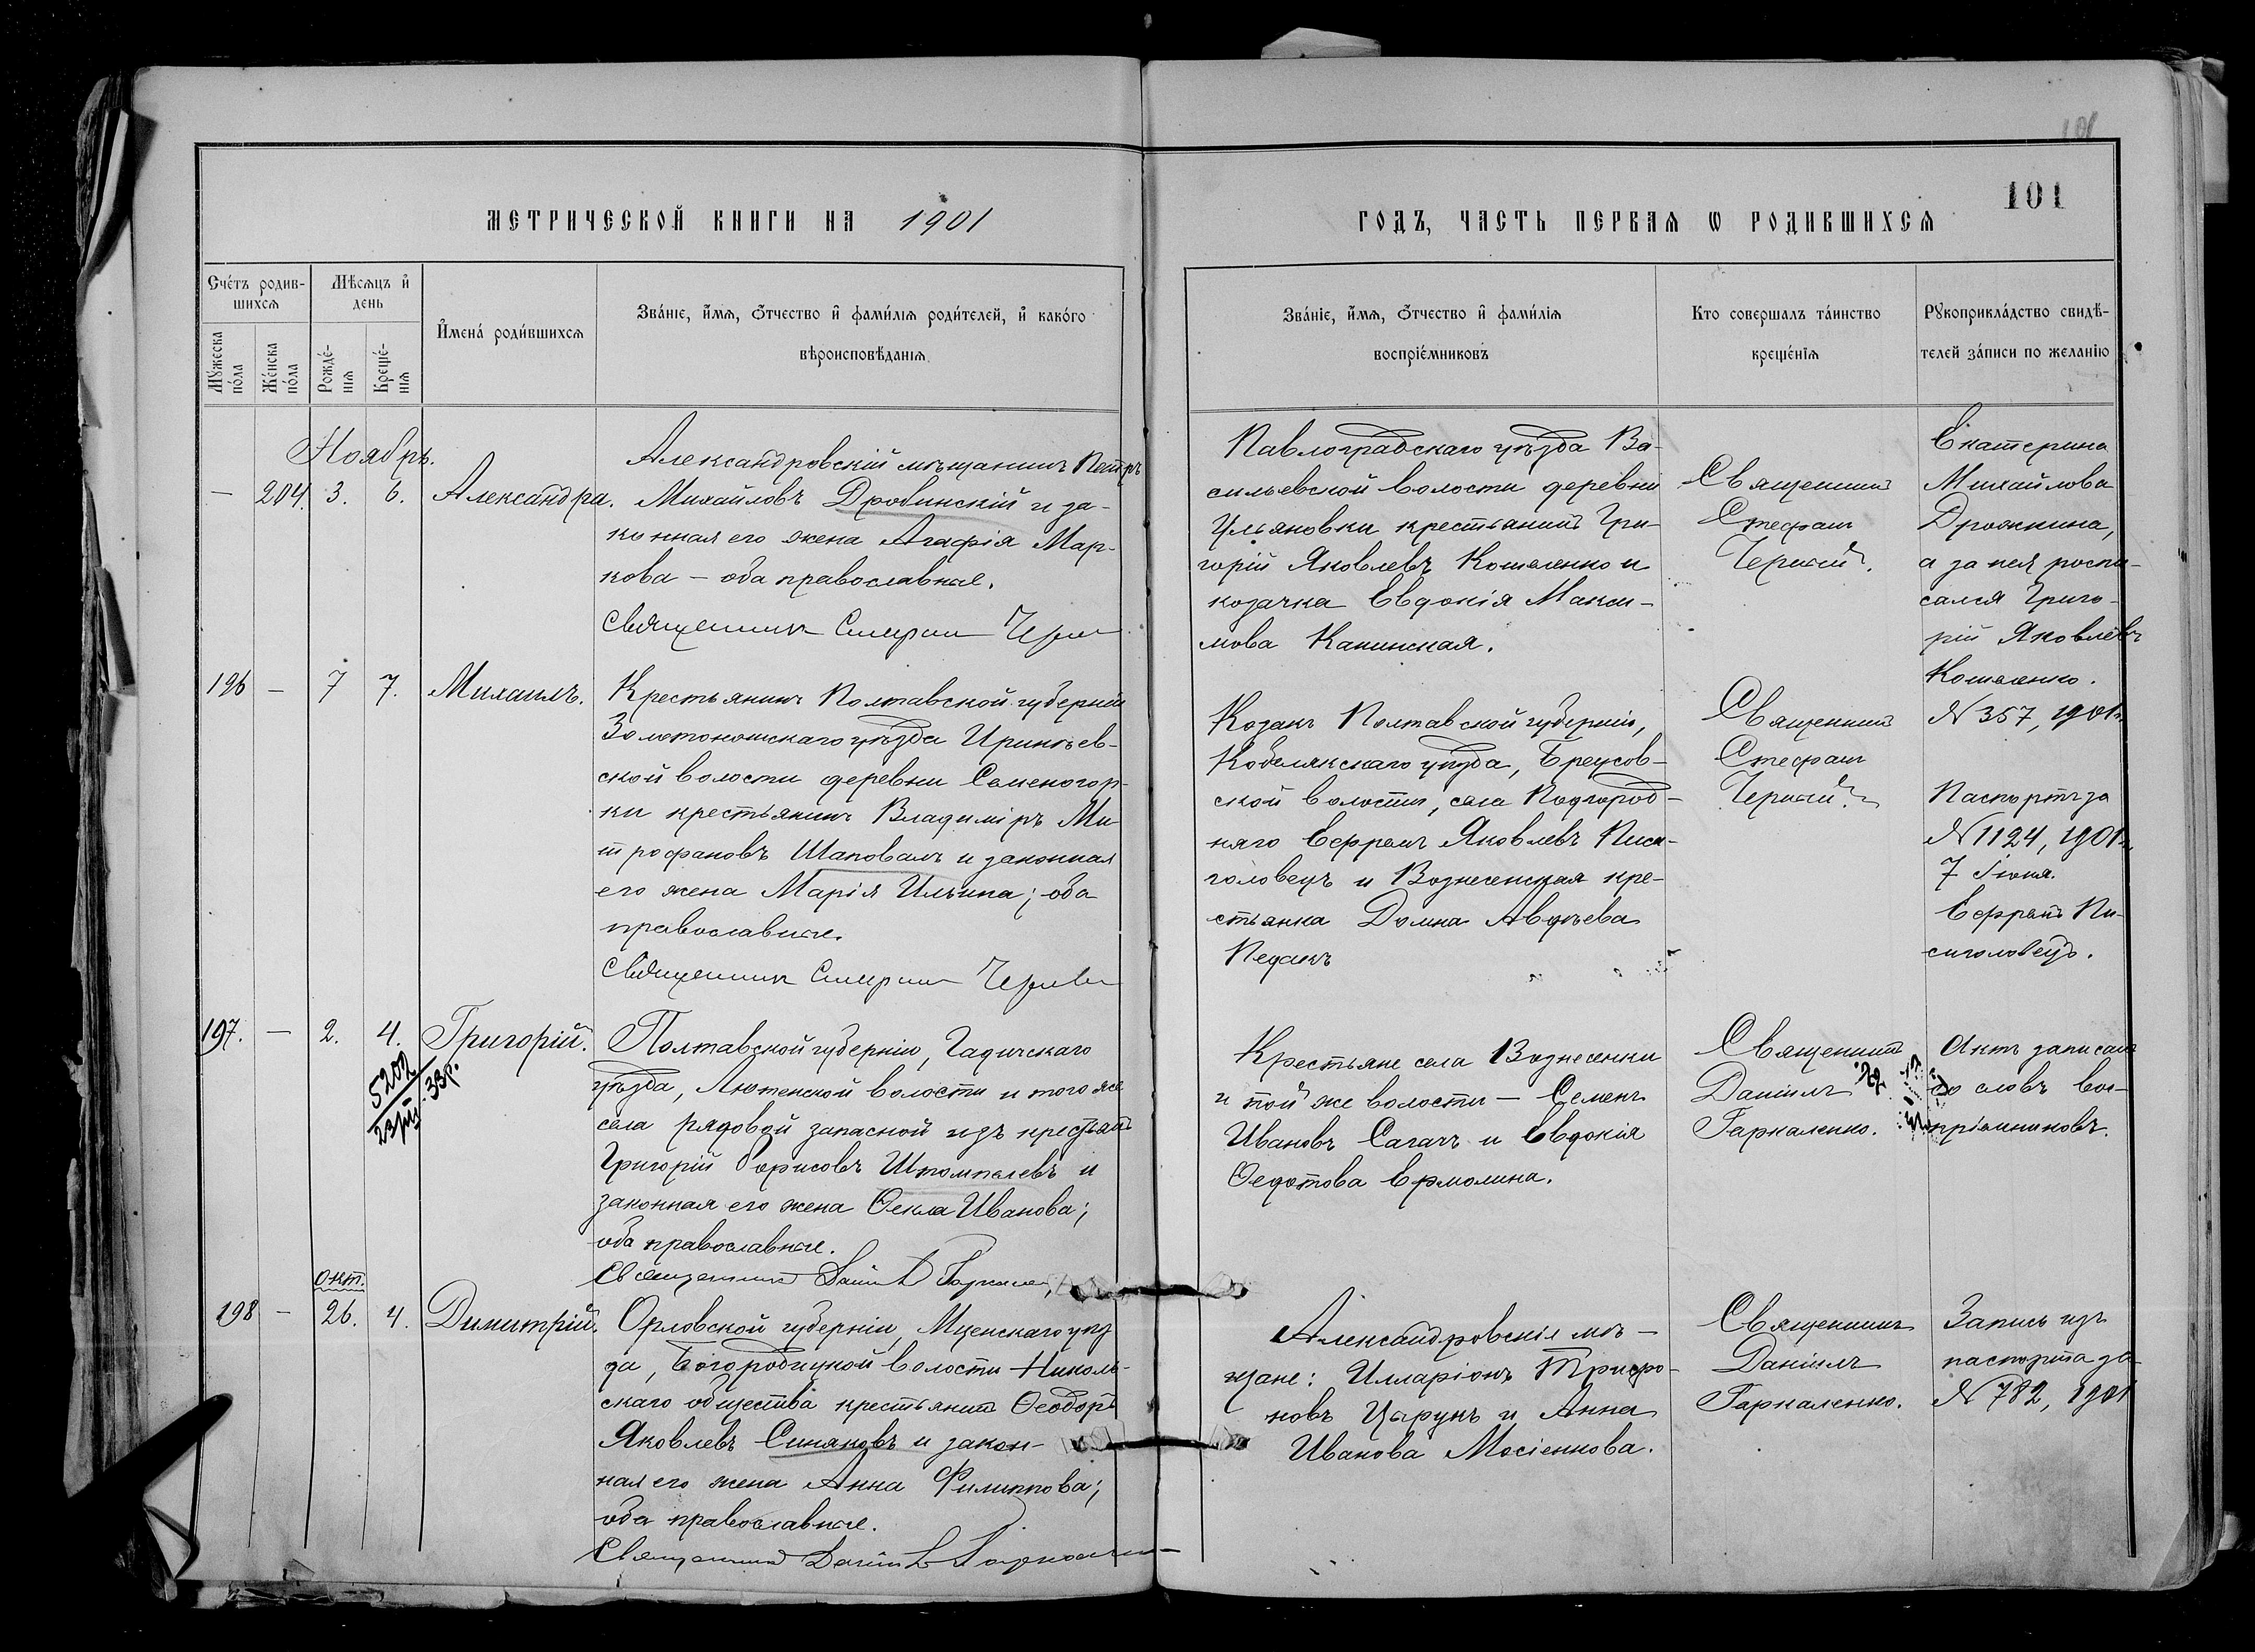 101
101
МЕТРИЧЕСКОЙ КНИГИ НА 1901
ГОДЪ, ЧАСТЬ ПЕРВАЯ Ѡ РОДИВШИХСЯ
Счетъ родив-
шихся
Мѣсяцъ и
день
Мужеска
пола
Женска
пола
Рожде-
нія
Креще-
нія
Имена родившихся
Званіе, имя, отчество и фамилія родителей, и какого
вѣроисповѣданія
Званіе, имя, отчество и фамилія
воспріемниковъ
Кто совершалъ таинство
крещенія
Рукоприкладство свидѣ-
телей записи по желанію
Ноябрь.
— 204. 3. 6. Александра.
Александровскій мѣщанинъ Петръ
Михайловъ Дробинскій и за-
конная его жена Агафія Мар-
кова – оба православные.
Священникъ Стефанъ
Павлоградскаго уѣзда Ва-
сильевской волости деревни
Ульяновки крестьянинъ Гри-
горій Яковлевъ Кошеленко и
козачка Евдокія Макси-
мова Канинская.
Священникъ
Стефанъ
Черный.
Екатерина
Михайлова
Дрожнина,
а за нея роспи-
сался Григо-
рій Яковлевъ
Кошеленко.
196 — 7 7. Михаилъ.
Крестьянинъ Полтавской губерніи
Золотоношскаго уѣзда Ириньев-
ской волости деревни Семеногор-
ки крестьянинъ Владиміръ Ми-
трофановъ Шаповалъ и законная
его жена Марія Ильина; оба
православные.
Священникъ Стефанъ
Козакъ Полтавской губерніи,
Кобелякскаго уѣзда, Бреусов-
ской волости, села Подгород-
няго Ефремъ Яковлевъ Писа-
головецъ и Вознесенская кре-
стьянка Домна Авдѣева
Педакъ
Священникъ
Стефанъ
Черный.
№ 357, 1901г.
Паспортъ за
№ 1124, 1901г.
7 Іюня.
Ефремъ Пи-
сиголовецъ.
197. — 2. 4. Григорій.
5202
33р.
Полтавской губерніи, Гадячскаго
уѣзда, Лютенской волости и того же
села рядовой запасной изъ крестьянъ
Григорій Борисовъ Штомпелевъ и
законная его жена Ѳекла Иванова;
оба православные.
Священникъ Даніилъ
Крестьяне села Вознесенки
и той же волости — Семенъ
Ивановъ Сагачъ и Евдокія
Ѳедотова Ермолина.
Священникъ
Даніилъ
Гаркаленко.
Актъ записанъ
со словъ вос-
пріемниковъ.
окт.
198 — 26. 4. Димитрій.
Орловской губерніи, Мценскаго уѣз
да, Богородицкой волости Николь-
скаго общества крестьянинъ Ѳеодоръ
Яковлевъ Синяковъ и закон-
ная его жена Анна Филиппова;
оба православные.
Священникъ Даніилъ
Александровскіе мѣ-
щане: Илларіонъ Трифо-
новъ Цырунъ и Анна
Иванова Мосіенкова.
Священникъ
Даніилъ
Гаркаленко.
Запись изъ
паспорта за
№ 782, 1901